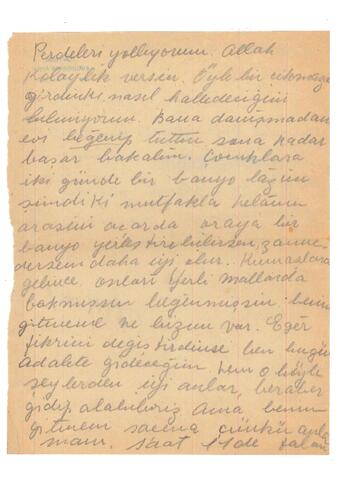 Perdeleri yolluyorum. Allah
kolaylık versin. Öyle bir çıkmaza
girdinki nasıl halledeceğini
bilmiyorum. Bana danışmadan
evi beğenip tuttun sona kadar
başar bakalım. Çocuklara
iki günde bir banyo lâzım
şimdiki mutfakla helânın
arasını açarda araya bir
banyo yerleştirebilirsen, zanne-
dersem daha iyi olur. Kumaşlara
gelince, onları Yerli Mallarda
bakmışsın beğenmişsin benim
gitmeme ne lüzum var. Eğer
fikrini değiştirdinse ben bugün
Adalete gideceğim, hem o böyle
şeylerden iyi anlar, beraber
gidip alabiliriz Ama benim
gitmem saçma çünkü anla
mam. Saat 11 de falan